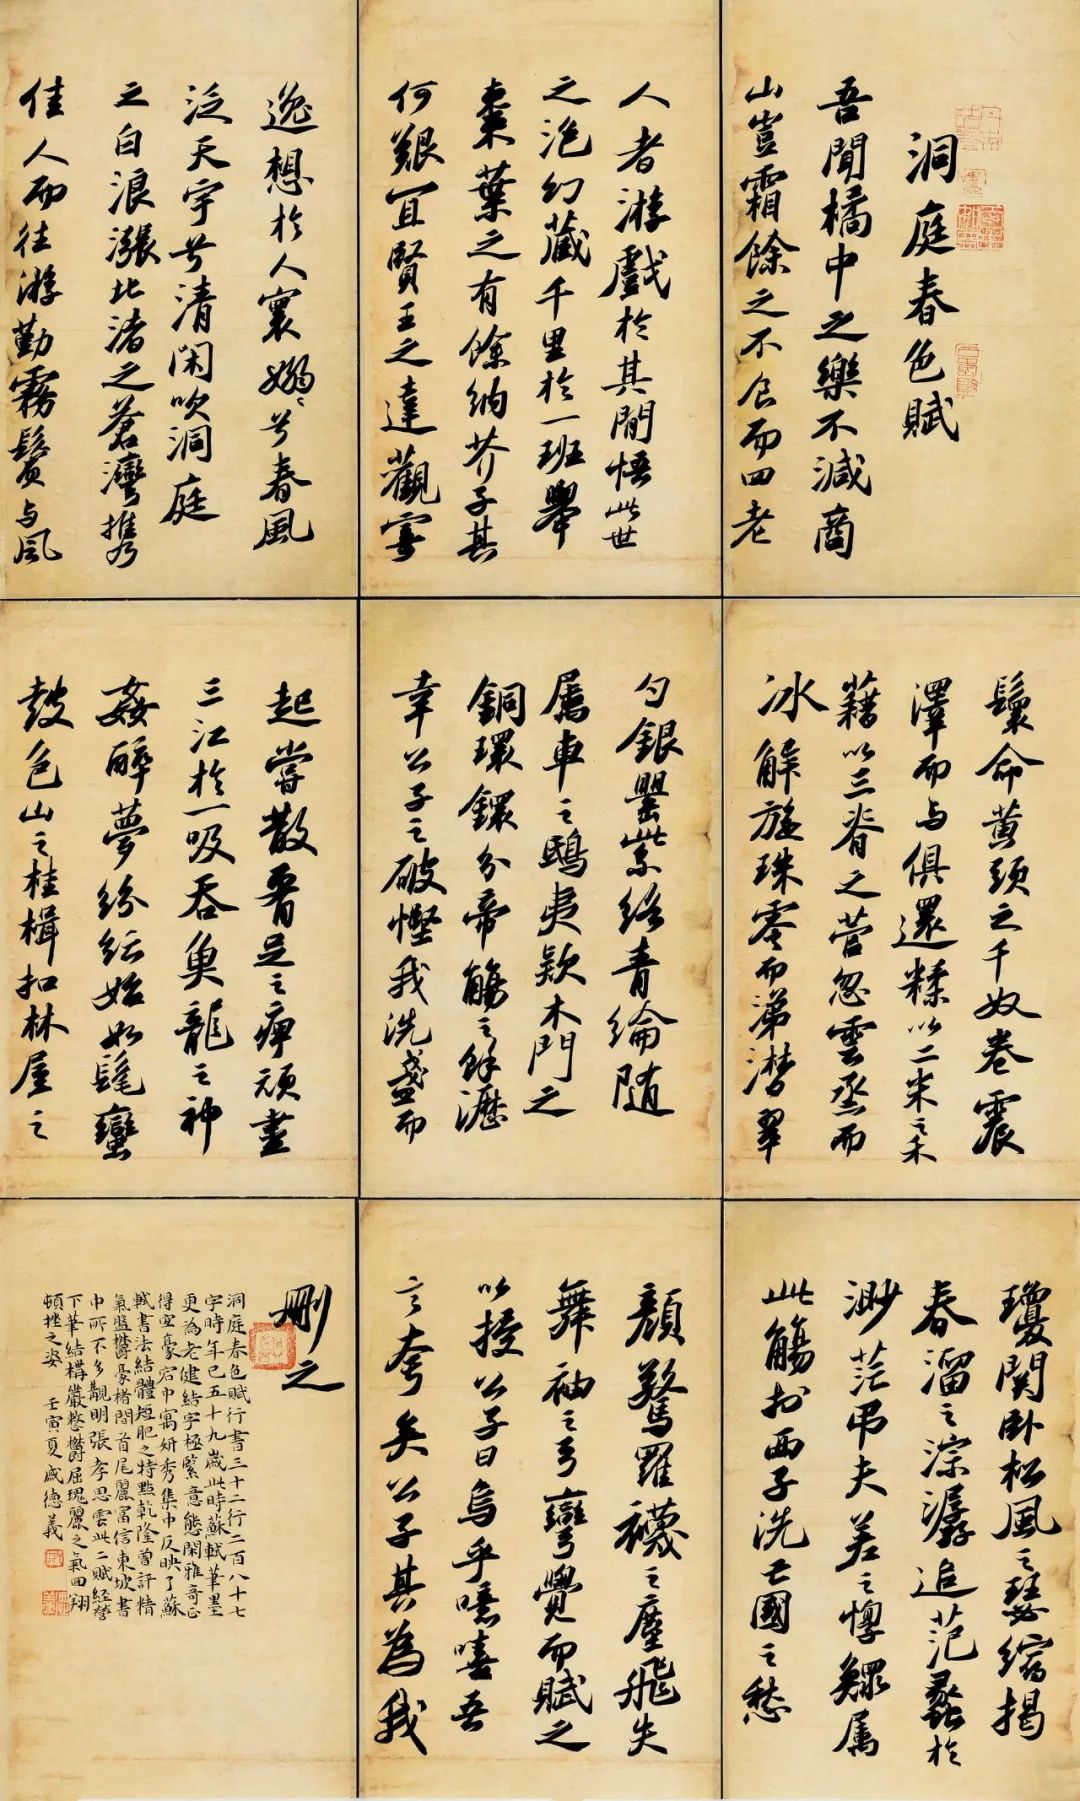 洞庭春色賦
吾聞橘中之樂不減商
山豈霜餘之不食而四老
人者游戲於其間悟此世
之泡幻藏千里於一班舉
棗葉之有餘納芥子其
何艱宜賢王之達觀寄
逸想於人寰嫋〻兮春風
泛天宇兮清閑吹洞庭
之白浪漲北渚之蒼灣攜
佳人而往游勤霧鬢与風
鬟命黃頭之千奴卷震
澤而与俱還糅以二米之禾
藉以三脊之菅忽雲烝而
冰解旋珠零而涕潸翠
勺銀罌紫絡青綸隨
属車之鴟夷款木門之
銅環鐶分帝觴之餘瀝
幸公子之破慳我洗盞而
起嘗散腰足之痹頑盡
三江於一吸吞魚龍之神
姦醉夢紛紜始如髦蠻
鼓包山之桂楫扣林屋之
瓊關臥松風之瑟縮揭
春溜之淙潺追范蠡於
渺茫弔夫差之惸鰥属
此觴於西子洗亡國之愁
顏驚羅襪之塵飛失
舞袖之弓彎覺而賦之
以授公子曰烏乎噫嘻吾
言夸矣公子其為我
刪之
洞庭春色賦行書三十二行二百八十七
字時年已五十九歲此時蘇軾筆墨
更為老健結字極緊意態閑雅奇正
得宜豪宕中寓妍秀集中反映了蘇
軾書法結體短肥之特點乾隆曾評精
氣盤鬱豪楮間首尾麗富信東坡書
中所不多覯明張孝思雲此二賦經營
下筆結構嚴整鬱屈瑰麗之氣回翔
頓挫之姿 壬寅夏 德義